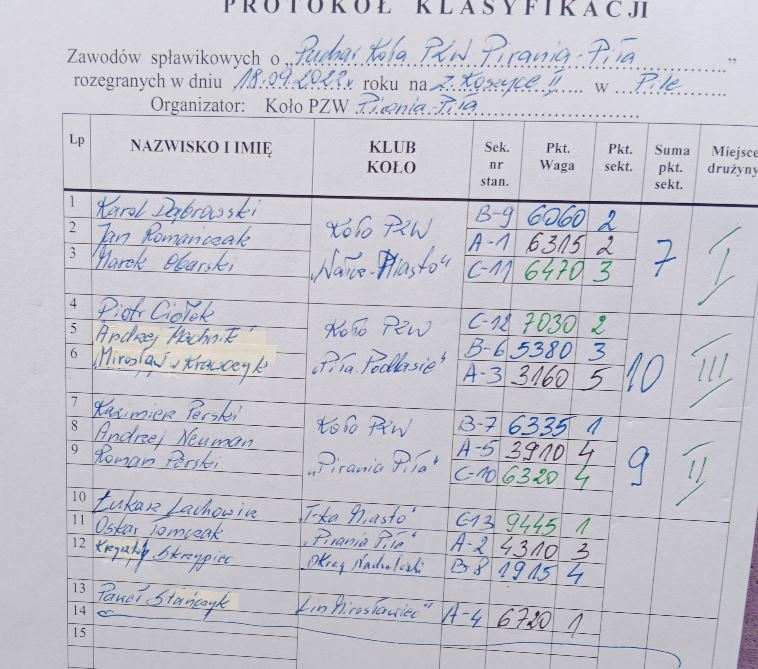 PROTOKÓŁ KLASYFIKACJI
Zawodów spławikowych o „Puchar Koła PZW Pirania-Piła”
rozegranych w dniu 18.09.2022r roku na z. Koszyce II w Pile
Organizator: Koło PZW Pirania-Piła
Lp NAZWISKO I IMIĘ KLUB KOŁO Sek. nr stan. Pkt. Waga Pkt. sekt. Suma pkt. sekt. Miejsce drużyny
1 Karol Dąbrowski B-9 6060 2
2 Jan Romańczak Koło PZW A-1 6315 2 7 I
3 Marek Obarski „Wałcz-Miasto" C-11 6470 3
4 Piotr Ciołek C-12 7030 2
5 Andrzej Machnik Koło PZW B-6 5380 3 10 III
6 Mirosław Krawczyk „Piła Podlasie" A-3 3160 5
7 Kazimierz Perski Koło PZW B-7 6335 1
8 Andrzej Neuman A-5 3910 4 9 II
9 Roman Perski „Pirania Piła" C-10 6320 4
10 Łukasz Lachowicz T-ka Miasto" C-13 9445 1
11 Oskar Tomczak „Pirania Piła" A-2 4310 3
12 Krzysztof Skrzypiec Okręg Nadnotecki B-8 1915 4
13 Paweł Stańczyk „Lin Mirosławiec" A-4 6720 1
14
15